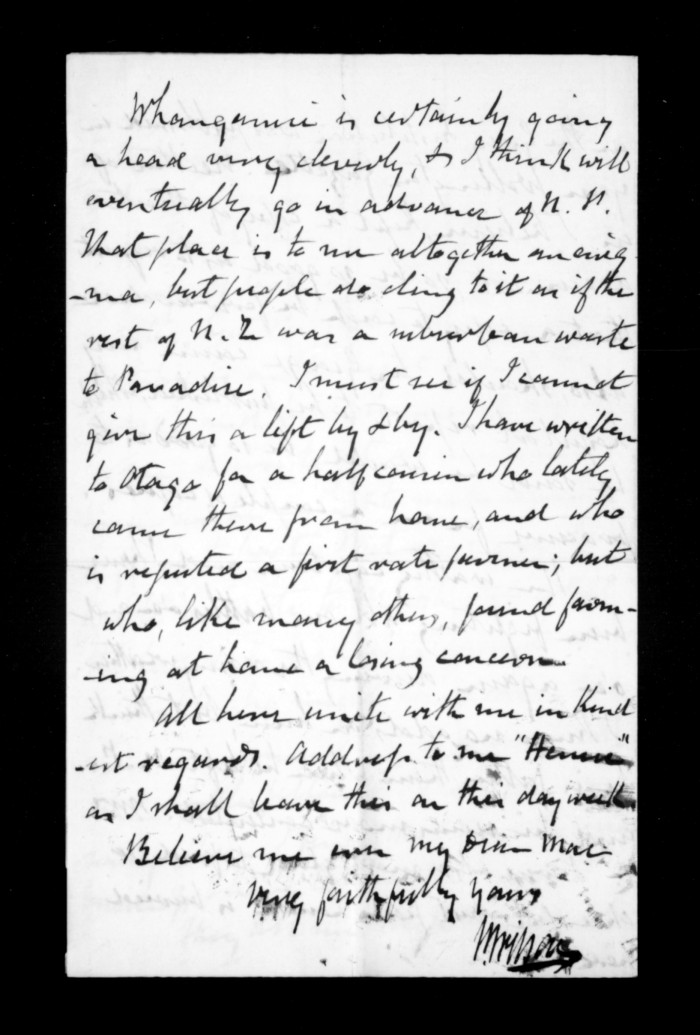 Whanganui is certainly going
a head very cleverly, & I think will
eventually go in advance of N. P.
That place is to me altogether an enig-
-ma, but people do cling to it as if the
rest of N.Z. was a suburban waste
to Paradise. I must see if I cannot
give this a lift by & by. I have written
to Otago for a half cousin who lately
came there from home, and who
is reputed a first rate farmer; but
who, like many others, found farm-
-ing at home a losing concern.
All here unite with me in Kind
-est regards. Address to me
as I shall leave this on this day week.
Believe me ever my Dear Mac
very faithfully yours